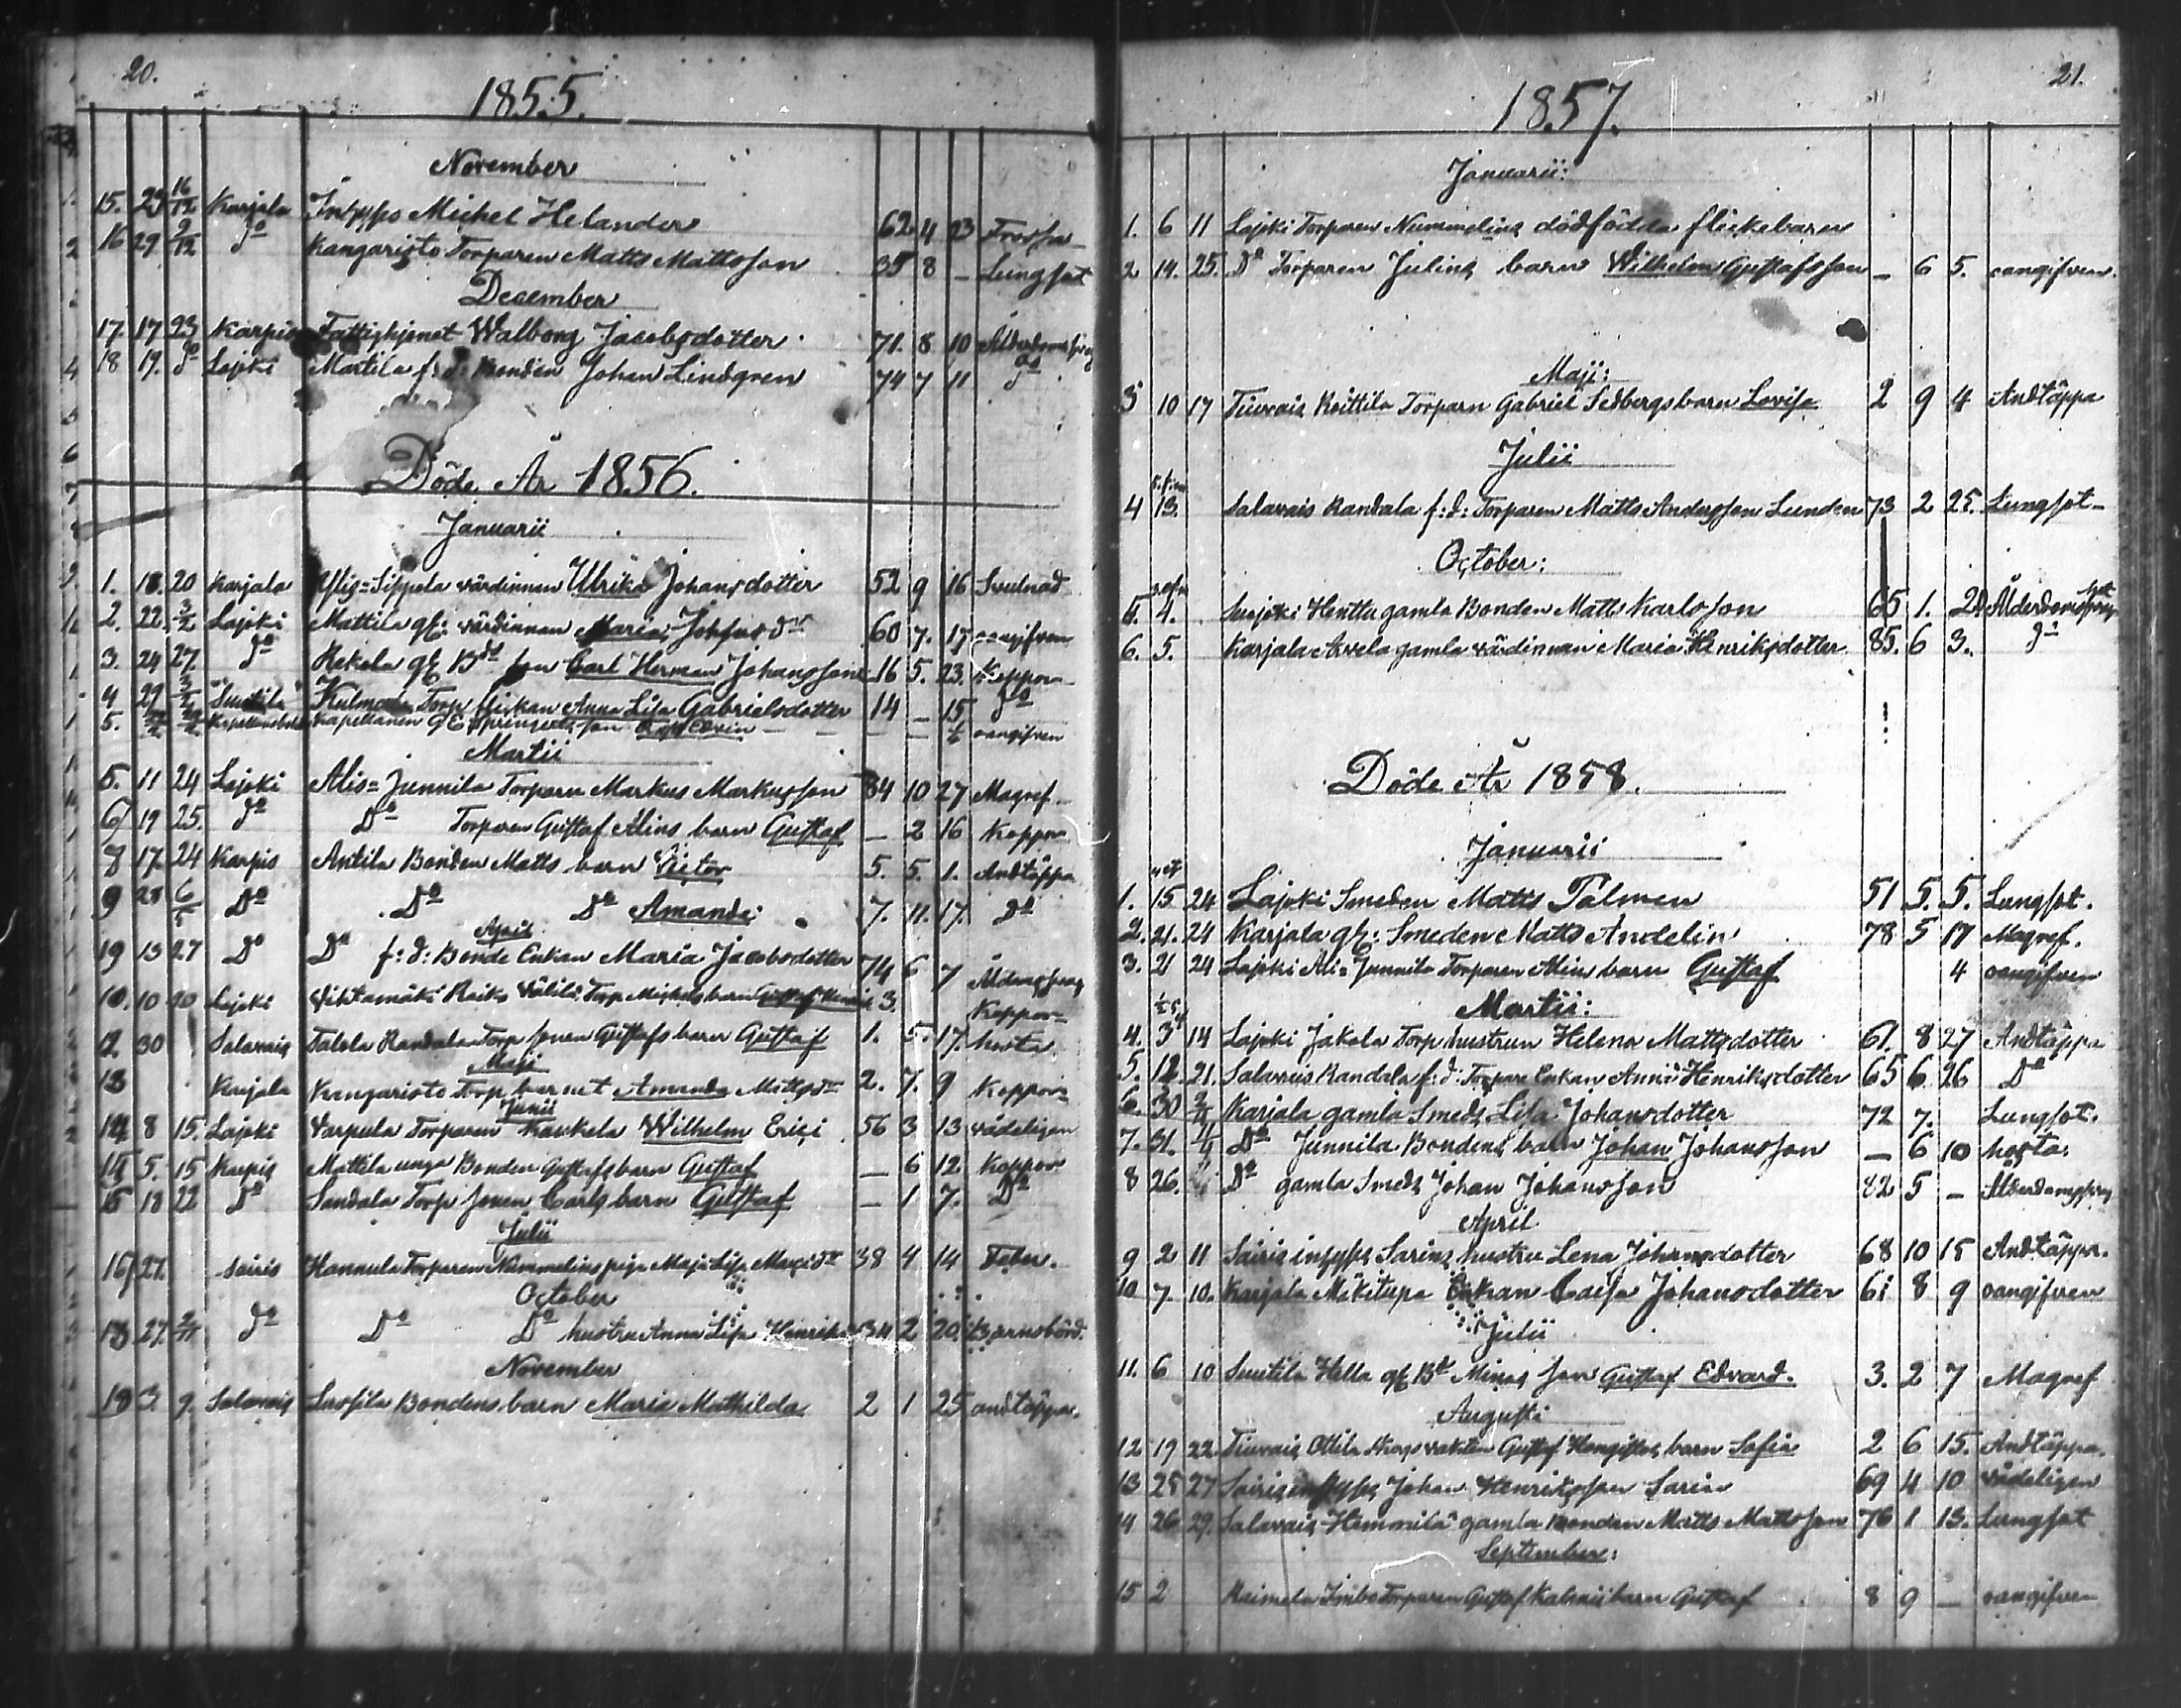 20.
1855.
November
15. 29 16/12 Karjala Inhyses Michel Helander 62 4 23 Frossa
16 29 9/12 do Kangaristo Torparen Matts Mattsson 35 8 – Lungsot
December
17. 17 23 Karpis Fattighjonet Walborg Jacobsdotter 71. 8 10
18 19. do Lajoki Martila f:d: Bonden Johan Lindgren 74 7 11 do
Döde År 1856.
Januarii
1. 18. 20 Karjala Sippola värdinnan Ulrika Johansdotter 52 9 16 Svulnad
2. 22. 3/2 Lajoki Mattila gl: värdinnan Maria 60 7. 17 oangifven
3. 24 27. do Rekola Carl Herman Johansson 16 5. 23. Koppor
4 29 Suutila Torp flickan Anna Lisa Gabrielsdotter 14 – 15 do
5. Kapellanen son Edvin – – – oangifven
Martii
5. 11 24 Lajoki Alis= Junnila Torparn Markus Markusson 84 10 27 Magref
6 19 25. do Do Torparen Gustaf Alins barn Gustaf – 2 16 Koppor
7 17. 24 Karpis Antila Bonden Matts barn Victor 5. 5. 1. Andtäppa
9 28 6/5 Do Do Do Amanda 7. 11. 17. Do
April
19 13 27 Do Do f:d: Bonde Enkan Maria Jacobsdotter 74 6 7
10. 10 20 Lajoki Vihtamäki Raiko Torp barn Gustaf Henric 3. Koppor
12 30 Salavais Randala Torp sonen Gustafs barn Gustaf 1. 5. 17. hosta
Maji
13 Karjala Kangaristo Torp barnet Amanda Mattsdr 2. 7. 9 Koppor
Junii
14 8 15. Lajoki Varpula Torparen Kaukela Wilhelm Erici 56 3 13 vådeligen
15 5. 15 Karpis Mattila unga Bonden Gustafs barn Gustaf – 6 12. Koppor
15 18 22 Do Sandala Torp sonen Carls barn Gustaf – 1 7. Do
Julii
16 27. Sairis Hannula Torparen Nummelins piga Maja Lisa 38 4 14 Feber.
October
18 27. 2/11 do Do Do hustru Anna Lisa 34 2 20 Barnsbörd.
November
19 3. 9. Salavais Sassila Bondens barn Maria Mathilda 2 1 25 andtäppa.
21.
1857.
Januarii:
1. 6 11 Lajoki Torparen Nummelins dödfödda flickebarn
2 14. 25. Do Torparen Julins barn Wilhelm Gustafsson – 6 5. oangifven.
Maji:
3 10 17 Tiuvais Keittila Torparn Gabriel Sedbergs barn Lovisa 2 9 4 Andtäppa
Julii
4 13. Salavais Randala f:d: Torparen Matts Andersson Lunden 73 2 25. Lungsot
October:
4. Suojoki Henttu gamla Bonden Matts Karlsson 65 1. 20
6. 5. Karjala Avela gamla värdinnan Maria Henriksdotter. 85. 6 3. do
Döde År 1858.
Januarii
1. 15 24 Lajoki Smeden Matts Palmen 51 5. 5. Lungsot.
2. 21. 24 Karjala gl: Smeden Matts Andelin 78 5 17 Magref.
3. 21 24 Lajoki Ali= Junnila Torparen Alins barn Gustaf 4 oangifven
Martii:
4. 3 14 Lajoki Jakola Torp. hustrun Helena Mattsdotter 61. 8 27 Andtäppa
5. 12. 21. Salavais Randala f:d: Torpare Enkan Anna Henriksdotter 65 6 26 Do
6. 30 Karjala gamla Smeds Lisa Johansdotter 72 7. Lungsot.
7. 31. 11/4 Do Junnila Bondens barn Johan Johansson – 6 10 hosta.
8 26. Do gamla Smeds Johan Johansson 82 5 –
April
9 2 11 Sairis inhyses Sarins hustru Lena Johansdotter 68 10 15 Andtäppa.
10 7. 10. Karjala Mäkitupa Enkan Caisa Johansdotter 61 8 9 oangifven
Julii
11. 6 10 Suutila Hella son Gustaf Edvard. 3. 2 7 Magref
Augusti
12 19 22. Tiuvais Ottila Gustaf barn Sofia 2 6 15. Andtäppa.
13 25 27 Sairis inhyses Johan Henriksson Sarin 69 4 10 vådeligen
14 26 29. Salavais Hemmilä gamla Bonden Matts Mattsson 76 1 13. Lungsot
September:
15 2 Raimela Torparen Gustaf barn Gustaf 8 9 – oangifven